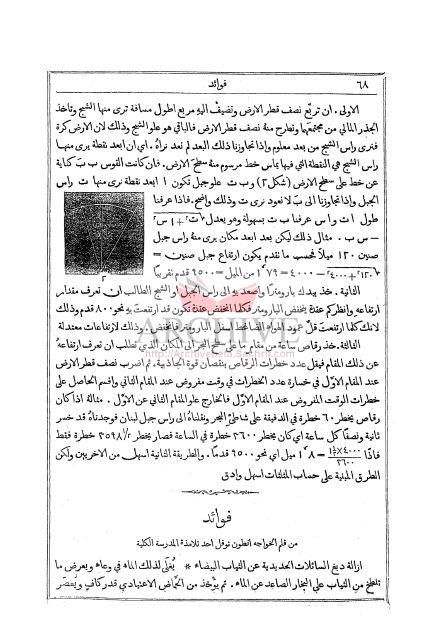 ٦٨
فوائد
الاولى. ان تربّع نصف قطر الارض وتضيف اليهِ مربع اطول مسافة ترى منها الشبح وتاخذ
الجذر المالي من مجتمعها وتطرح منهُ نصف قطر الارض فالباقي هو علو الشبح وذلك لان الارض كرة
فترى راس الشبح من بعد معلوم وإذا تجاوزنا ذلك البعد لم نعد نراهُ. اي ان ابعد نقطة يرى منها
راس الشبح هي النقطة التي فيها يماس خط مرسوم منهُ سطح الارض. فان كانت القوس ب ت كناية
عن خط على سطح الارض (شكل ٢) و ب ت علو جبل تكون ا ابعد نقطة نرى منها ت راس
الجبل وإذا تجاوزنا الى ب لا نعود نرى ت وذلك واضح. فاذا عرفنا
طول ا ت و ا س عرفنا ب ت بسهولة وهو يعدل √ا ت٢ + ا س٢
— س ب. مثال ذلك ليكن بعد ابعد مكان يرى منهُ راس جبل
صنين ١٢٠ ميلاً فحسب ما تقدم يكون ارتفاع جبل صنين =
√١٢٠٢ + ٤٠٠٠٢ — ٤٠٠٠ = ١٫٧٩ من الميل = ٩٥٠٠ قدم تقريباً
٢
الثانية. خذ بيدك بارومتراً واصعد بهِ الى راس الجبل او الشبح الطالب ان تعرف مقدار
ارتفاعهِ وانظر كم عقدة ينخفض البارومتر فكلما انخفض عقدة تكون قد ارتفعت بهِ نحو ٨٠٠ قدم وذلك
لانك كلما ارتفعت قلّ عمود الهواء الضاغط البارومتر وذلك لارتفاعات معتدلة
الثالثة. خذ رقاص ساعة من مقام ما على سطح البحر الى المكان الذي تطلب ان تعرف ارتفاعهُ
عن ذلك المقام فيقل عدد خطرات الرقاص بنقصان قوة الجاذبية. ثم اضرب نصف قطر الارض
عند المقام الاول في خسارة عدد الخطرات في وقت مفروض عند المقام الثاني واقسم الحاصل على
خطرات الوقت المفروض عند المقام الاول فالخارج علو المقام الثاني عن الاول. مثالهُ اذا كان
رقاص يخطر ٦٠ خطرة في الدقيقة على شاطئ البحر ونقلناهُ الى راس جبل لبنان فوجدناهُ قد خسر
ثانية ونصفاً كل ساعة اي كان يخطر ٣٦٠٠ خطرة في الساعة فصار يخطر ٣٥٩٨½ خطرة فقط
فاذًا ٤٠٠٠ × ١½ / ٣٦٠٠ = ١٫٨ ميل اي نحو ٩٥٠٠ قدماً. والطريقة الثانية اسهل من الاخريين ولكن
الطرق المبنية على حساب المثلثات اسهل وادق
فوائد
من قلم الخواجه انطون نوفل احد تلامذة المدرسة الكلية
ازالة دبغ السائلات الحديدية عن الثياب البيضاء * يُغلى لذلك الماء في وعاء ويعرض ما
تلطخ من الثياب على البخار الصاعد عن الماء. ثم يؤخذ من الحمّاض الاعتيادي قدر كافٍ ويُعصر
ARCHIVE
http://Archivebeta.Sakhrit.com